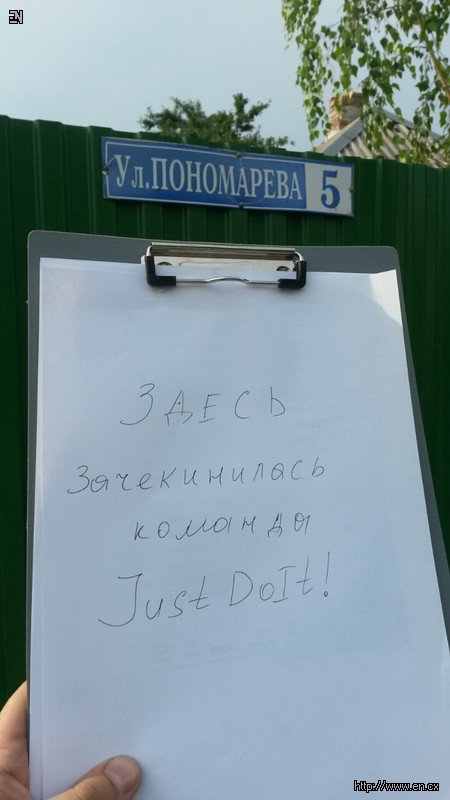 EN
Ул.ПОНОМАРЕВА 5
ЗДЕСЬ
Зачекинилась
команда
Just DoIt!
http://www.en.cx